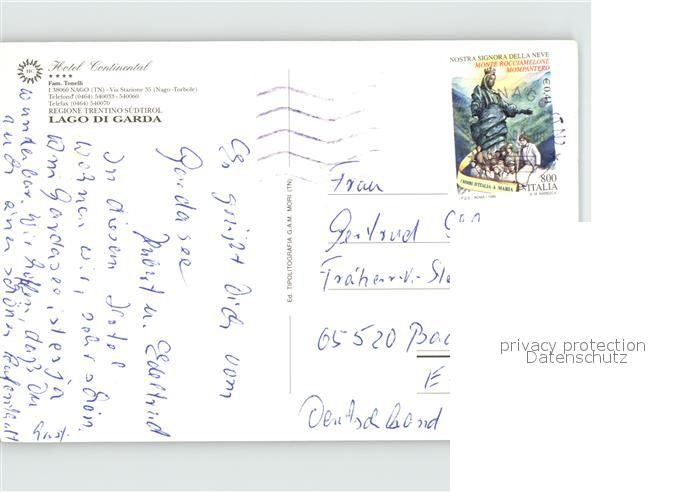 Hotel Continental
★★★★
Fam. Tonelli
I 38060 NAGO (TN) - Via Stazione 35 (Nago -Torbole)
Telefono (0464) 540033 - 540060
Telefax (0464) 540070
REGIONE TRENTINO SÜDTIROL
LAGO DI GARDA
Es grüßt Dich vom
Gardasee
Hubert u. Edeltrud
In diesem Hotel
wohnen wir, sehr schön.
Am Gardasee ist es ja
wunderbar. Wir hoffen, daß Du
auch einen schönen Aufenthalt
hast.
Ed. TIPOLITOGRAFIA G.A.M. MORI (TN)
NOSTRA SIGNORA DELLA NEVE
MONTE ROCCIAMELONE
MOMPANTERO
I BIMBI D'ITALIA A MARIA
800
ITALIA
Frau
Gertrud
65520 Bad
Deutschland
privacy protection
Datenschutz